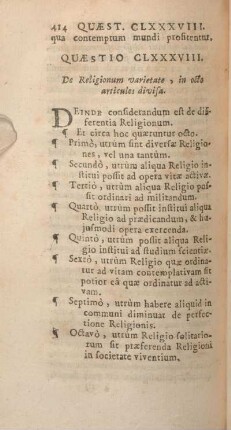 414 QUÆST. CLXXXVIII.
qua contemptum mundi profitentur.
QUÆSTIO CLXXXVIII.
De Religionum varietate, in octo
articulos divisa.
DEINDE considerandum est de dif-
ferentia Religionum.
¶ Et circa hoc quæruntur octo.
¶ Primò, utrùm sint diversæ Religio-
nes, vel una tantùm.
¶ Secundò, utrùm aliqua Religio in-
stitui possit ad opera vitæ activæ.
¶ Tertiò, utrùm aliqua Religio pos-
sit ordinari ad militandum.
¶ Quartò, utrùm possit institui aliqua
Religio ad prædicandum, & hu-
jusmodi opera exercenda.
¶ Quintò, utrùm possit aliqua Reli-
gio institui ad studium scientiæ.
¶ Sextò, utrùm Religio quæ ordina-
tur ad vitam contemplativam sit
potior eâ quæ ordinatur ad acti-
vam.
¶ Septimò, utrùm habere aliquid in
communi diminuat de perfec-
tione Religionis.
¶ Octavò, utrùm Religio solitario-
rum sit præferenda Religioni
in societate viventium.